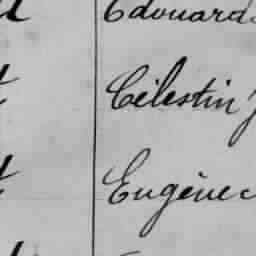 Edouard
Célestin J
Eugène